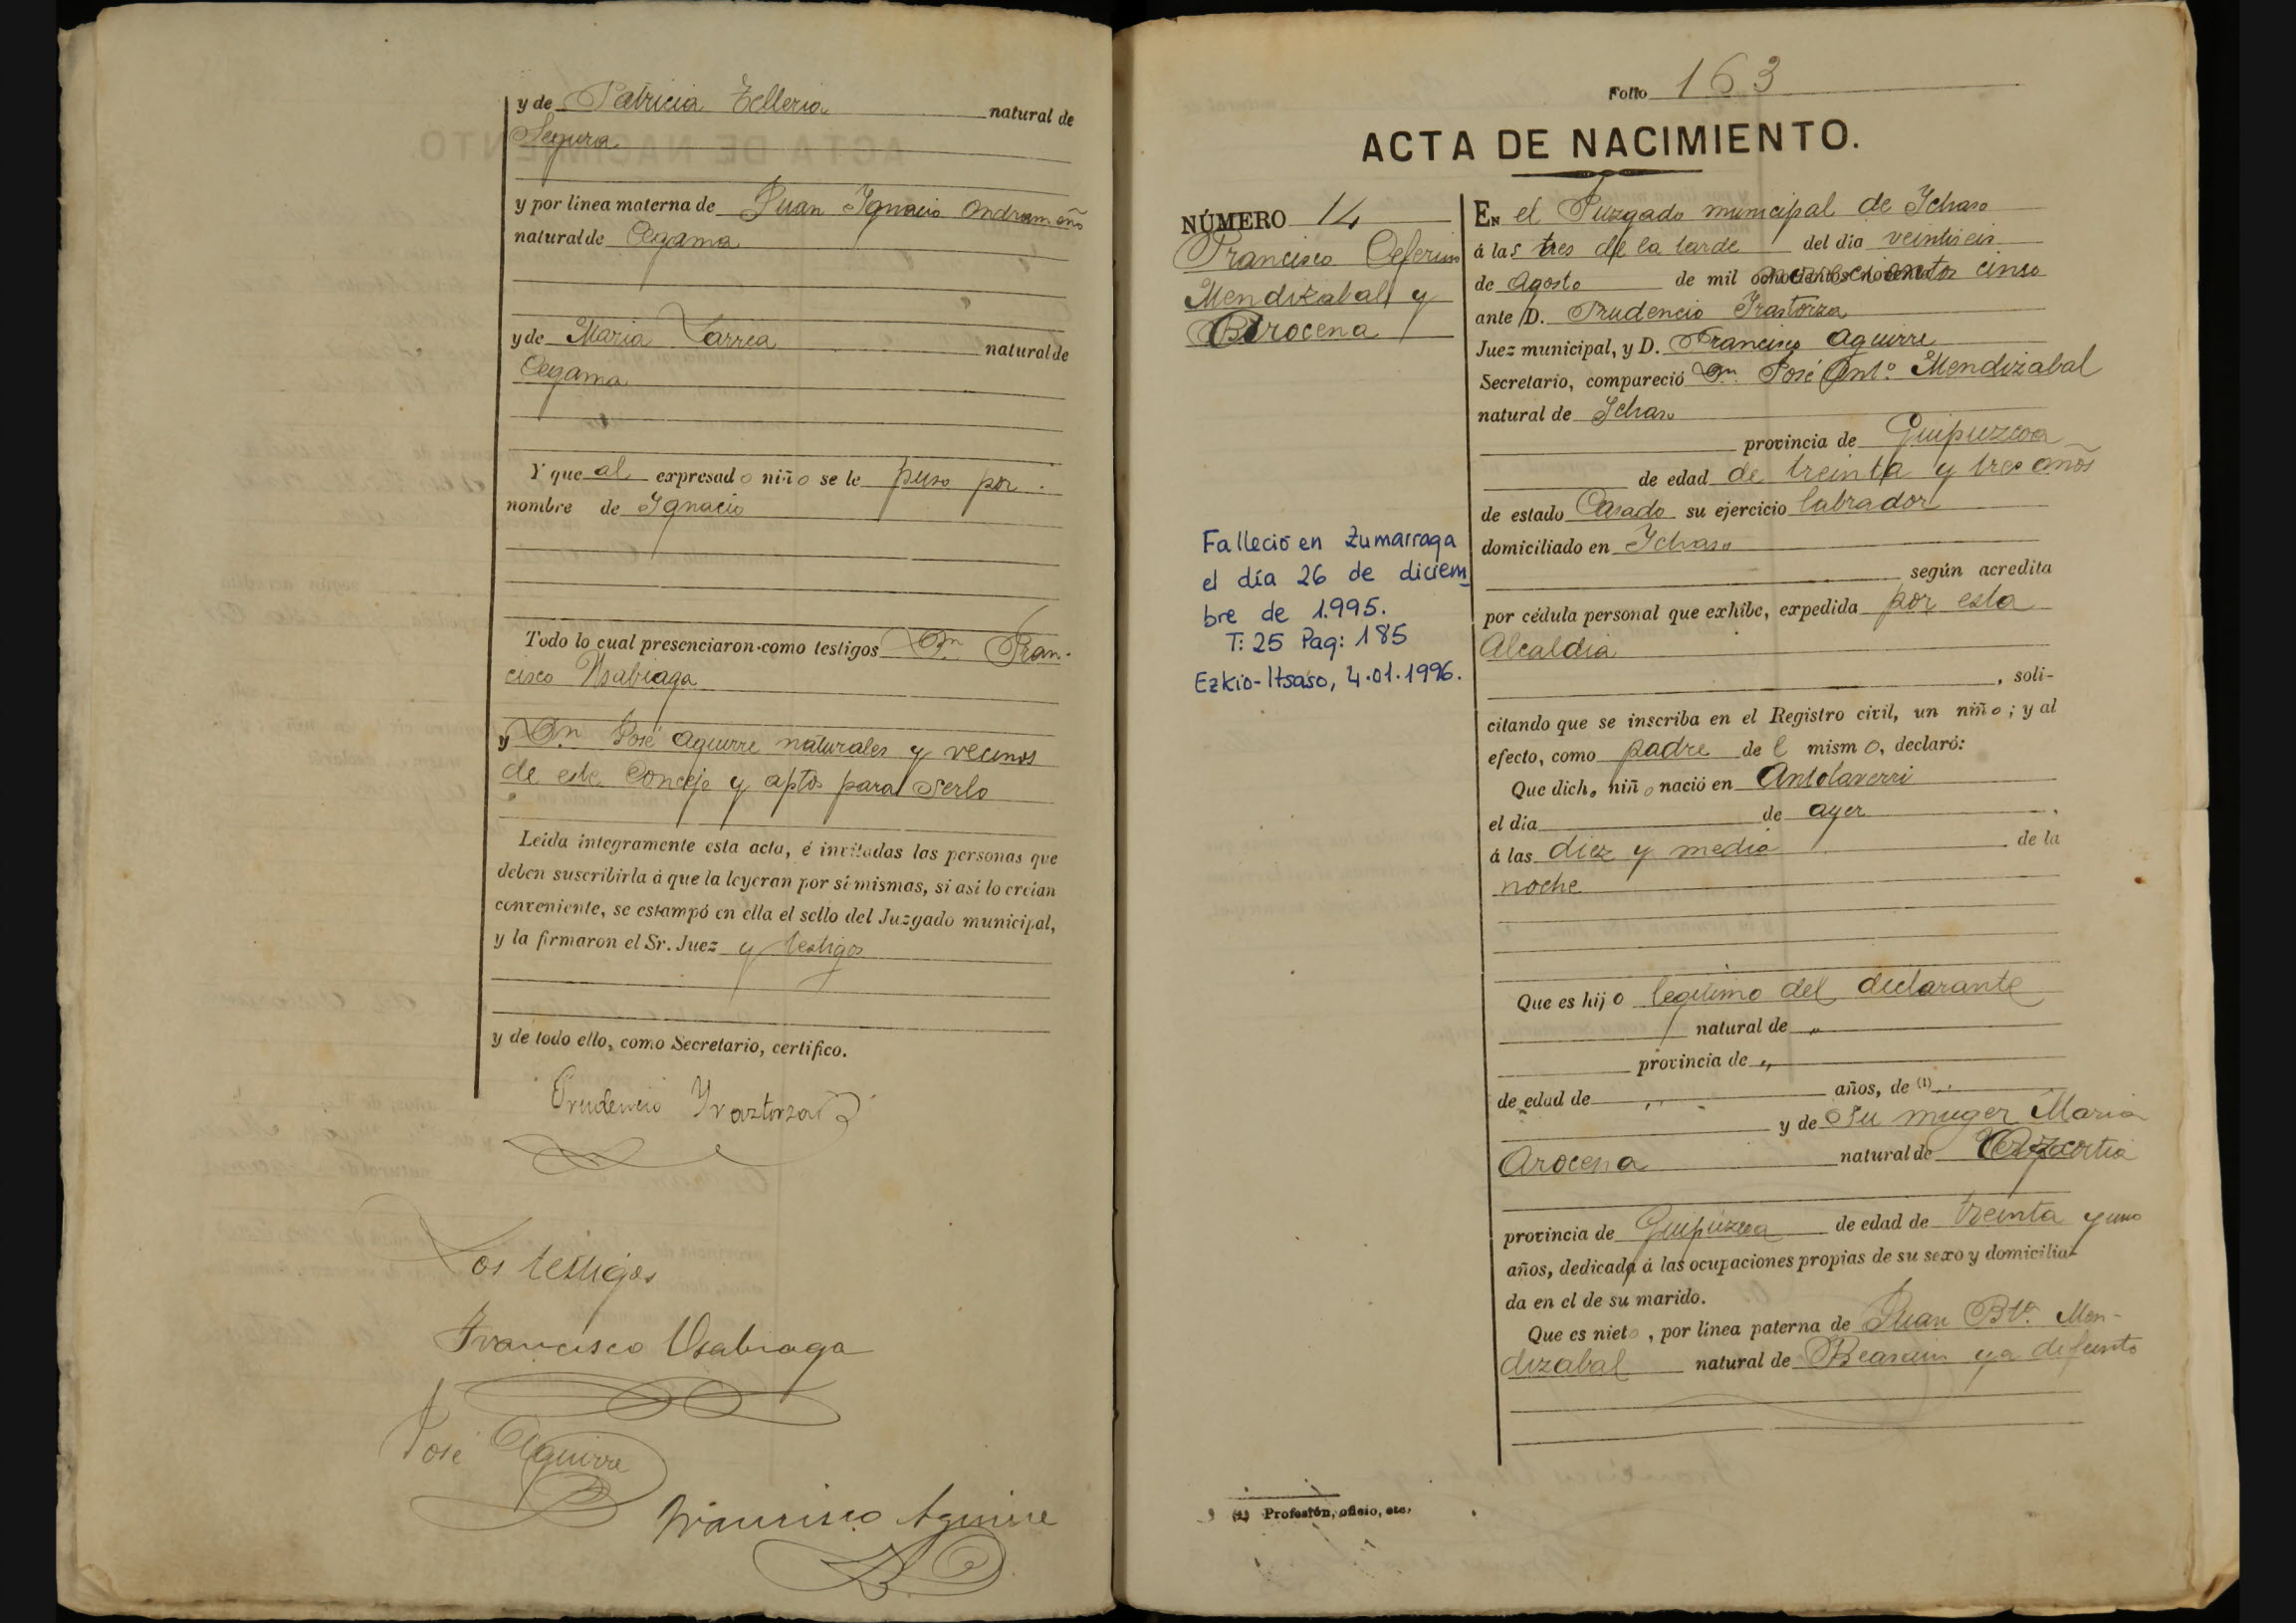 y de Patricia Telleria natural de
Segura
y por linea materna de Juan Ygnacio Ondramuño
natural de Cegama
y de Maria Larrea natural de
Cegama
Y que al expresado niño se le puso por
nombre de Ygnacio
Todo lo cual presenciaron como testigos Dn. Fran-
cisco Usabiaga
y Dn. José Aguirre naturales y vecinos
de este Concejo y aptos para serlo
Leida integramente esta acta, é invitadas las personas que
deben suscribirla á que la leyeran por sí mismas, si asi lo creian
conveniente, se estampó en ella el sello del Juzgado municipal,
y la firmaron el Sr. Juez y testigos
y de todo ello, como Secretario, certifico.
Prudencio Yraztorza
Los testigos
Francisco Usabiaga
José Aguirre
Francisco Aguirre
Folio 163
ACTA DE NACIMIENTO.
NÚMERO 14
Francisco Ceferino
Mendizabal y
Arocena
Falleció en Zumarraga
el día 26 de diciem
bre de 1.995.
T: 25 Pag: 185
Ezkio-Itsaso, 4.01.1996.
En el Juzgado municipal de Ychaso
á las tres de la tarde del dia veintiseis
de Agosto de mil novecientos cinco
ante D. Prudencio Yrastorza
Juez municipal, y D. Francisco Aguirre
Secretario, compareció Dn. José Anto. Mendizabal
natural de Ychaso
provincia de Guipuzcoa
de edad de treinta y tres años
de estado Casado su ejercicio labrador
domiciliado en Ychaso
según acredita
por cédula personal que exhibe, expedida por esta
Alcaldia
, soli-
citando que se inscriba en el Registro civil, un niño; y al
efecto, como padre del mismo, declaró:
Que dicho niño nació en Antolaverri
el dia de ayer
á las diez y media de la
noche
Que es hijo legitimo del declarante
natural de "
provincia de "
de edad de " años, de (1)
y de su muger Maria
Arocena natural de
provincia de Guipúzcoa de edad de treinta y uno
años, dedicada á las ocupaciones propias de su sexo y domicilia-
da en el de su marido.
Que es nieto, por linea paterna de Juan Bta. Men-
dizabal natural de Beasain ya difunto
(1) Profesión, oficio, etc.